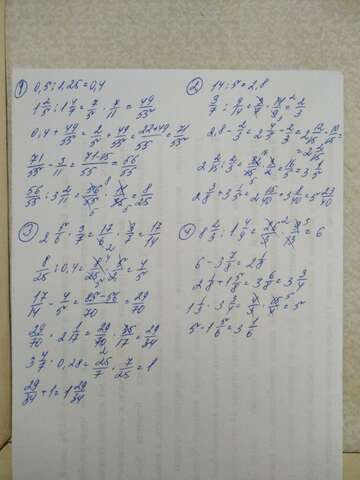 1) 0,5 : 1,25 = 0,4
1 2/5 : 1 4/7 = 7/5 · 7/11 = 49/55
0,4 + 49/55 = 2/5 + 49/55 = 22+49/55 = 71/55
71/55 - 3/11 = 71-15/55 = 56/55
56/55 : 3 2/11 = 56/55 · 11/35 = 8/25
2) 14 : 5 = 2,8
3/7 : 9/14 = 3/7 · 14/9 = 2/3
2,8 - 2/3 = 2 4/5 - 2/3 = 2 12/15 - 10/15 = 2 2/15
2 2/15 : 2/3 = 32/15 · 3/2 = 16/5 = 3 1/5
2 3/8 + 3 1/5 = 2 15/40 + 3 8/40 = 5 23/40
3) 2 5/6 · 3/7 = 17/6 · 3/7 = 17/14
8/25 : 0,4 = 8/25 · 5/2 = 4/5
17/14 - 4/5 = 85-56/70 = 29/70
29/70 : 2 1/17 = 29/70 · 35/17 = 29/34
3 4/7 · 0,28 = 25/7 · 7/25 = 1
29/34 + 1 = 1 29/34
4) 8 2/3 : 1 4/9 = 26/3 · 9/13 = 6
6 - 3 7/8 = 2 1/8
2 1/8 + 1 5/8 = 3 6/8 = 3 3/4
1 1/3 · 3 3/4 = 4/3 · 15/4 = 5
5 - 1 5/6 = 3 1/6